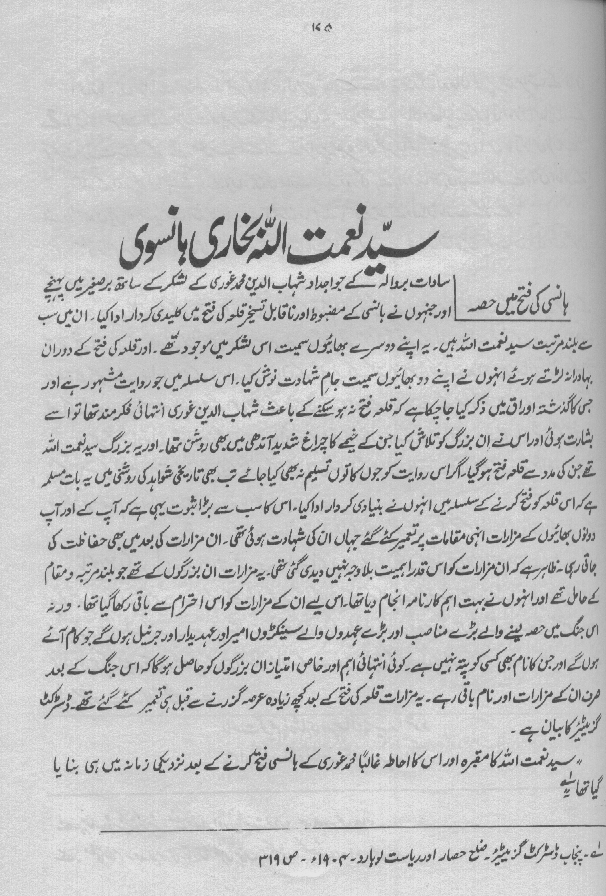 ۱۷۵
سید نعمت اللہ بخاری ہانسوی
ہانسی کی فتح میں حصہ
سادات بروالہ کے جو اجداد شہاب الدین محمد غوری کے لشکر کے ساتھ برصغیر میں پہنچے
اور جنہوں نے ہانسی کے مضبوط اور ناقابل تسخیر قلعہ کی فتح میں کلیدی کردار ادا کیا۔ ان میں سب
سے بلند مرتبت سید نعمت اللہ ہیں۔ یہ اپنے دوسرے بھائیوں سمیت اس لشکر میں موجود تھے۔ اور قلعہ کی فتح کے دوران
بہادرانہ لڑتے ہوئے انہوں نے اپنے دو بھائیوں سمیت جام شہادت نوش کیا۔ اس سلسلہ میں جو روایت مشہور ہے اور
جس کا گذشتہ اوراق میں ذکر کیا جا چکا ہے کہ قلعہ فتح نہ ہو سکنے کے باعث شہاب الدین غوری انتہائی فکر مند تھا تو اسے
بشارت ہوئی اور اس نے ان بزرگ کو تلاش کیا جن کے خیمے کا چراغ شدید آندھی میں بھی روشن تھا۔ اور یہ بزرگ سید نعمت اللہ
تھے جن کی مدد سے قلعہ فتح ہو گیا۔ اگر اس روایت کو جوں کا توں تسلیم نہ بھی کیا جائے تب بھی تاریخی شواہد کی روشنی میں یہ بات مسلمہ
ہے کہ اس قلعہ کو فتح کرنے کے سلسلہ میں انہوں نے بنیادی کردار ادا کیا۔ اس کا سب سے بڑا ثبوت یہی ہے کہ آپ کے اور آپ کے
دونوں بھائیوں کے مزارات انہی مقامات پر تعمیر کئے گئے جہاں ان کی شہادت ہوئی تھی۔ ان مزارات کی بعد میں بھی حفاظت کی
جاتی رہی۔ ظاہر ہے کہ ان مزارات کو اس قدر اہمیت بلاوجہ نہیں دیدی گئی تھی۔ یہ مزارات ان بزرگوں کے تھے جو بلند مرتبہ و مقام
کے حامل تھے اور انہوں نے بہت اہم کارنامہ انجام دیا تھا۔ اس لیے ان کے مزارات کو اس احترام سے باقی رکھا گیا تھا۔ ورنہ
اس جنگ میں حصہ لینے والے بڑے مناصب اور بڑے عہدوں والے سینکڑوں امیر اور عہدیدار اور جرنیل ہوں گے جو کام آئے
ہوں گے اور جن کا نام بھی کسی کو پتہ نہیں ہے۔ کوئی انتہائی اہم اور خاص امتیاز ان بزرگوں کو حاصل ہوگا کہ اس جنگ کے بعد
صرف ان کے مزارات اور نام باقی رہے۔ یہ مزارات قلعہ کی فتح کے بعد کچھ زیادہ عرصہ گزرنے سے قبل ہی تعمیر کئے گئے تھے۔ ڈسٹرکٹ
گزیٹیئر کا بیان ہے۔
"سید نعمت اللہ کا مقبرہ اور اس کا احاطہ غالباً محمد غوری کے ہانسی فتح کرنے کے بعد نزدیکی زمانہ میں ہی بنایا
گیا تھا۔ ؎۱
؎۱۔ پنجاب ڈسٹرکٹ گزیٹیئر۔ ضلع حصار اور ریاست لوہارو۔ ۱۹۰۴ء۔ ص ۳۱۹